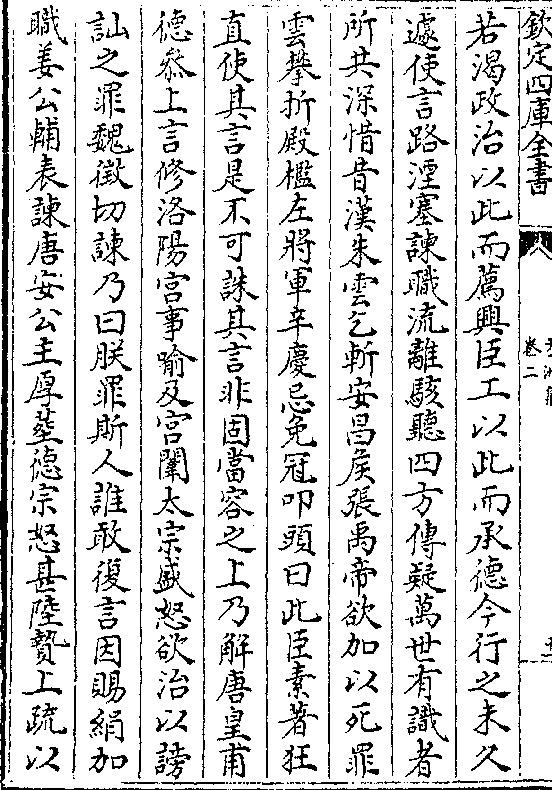 欽定四庫全書
卷二
若渴政治以此而薦興臣工以此而承德今行之未久
遽使言路湮塞諫職流離駭聽四方傳疑萬世有識者
所共深惜昔漢朱雲乞斬安昌矦張禹帝欲加以死罪
雲攀折殿檻左將軍辛慶忌免冠叩頭曰此臣素著狂
直使其言是不可誅其言非固當容之上乃解唐皇甫
德叅上言修洛陽宫事喻及宫闈太宗盛怒欲治以謗
訕之罪魏徵切諫乃曰朕罪斯人誰敢復言因賜絹加
職姜公輔表諫唐安公主厚塟德宗怒甚陸贄上疏以